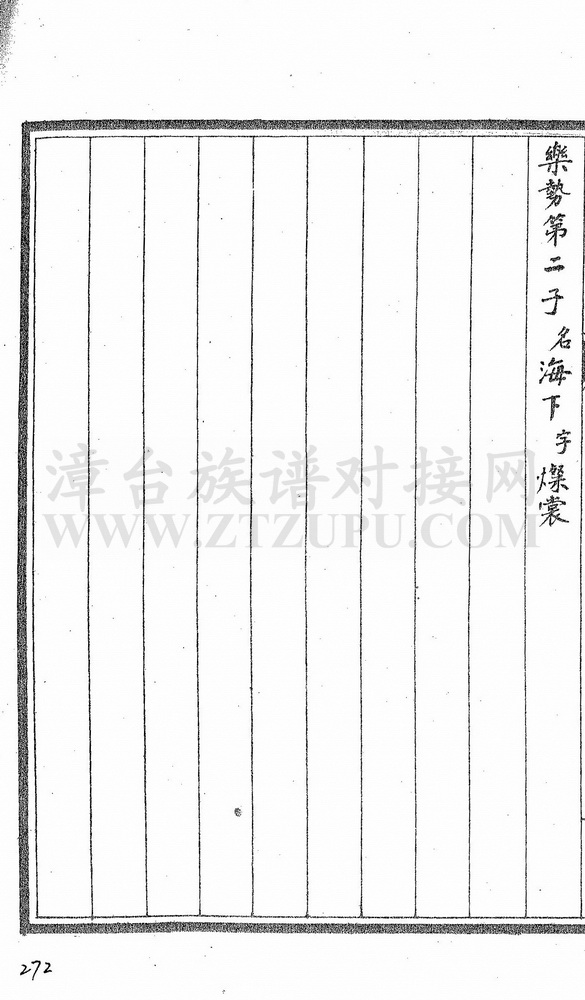 樂勢第二子名海下字燦裳
漳台族谱对接网
WWW.ZTZUPU.COM
272